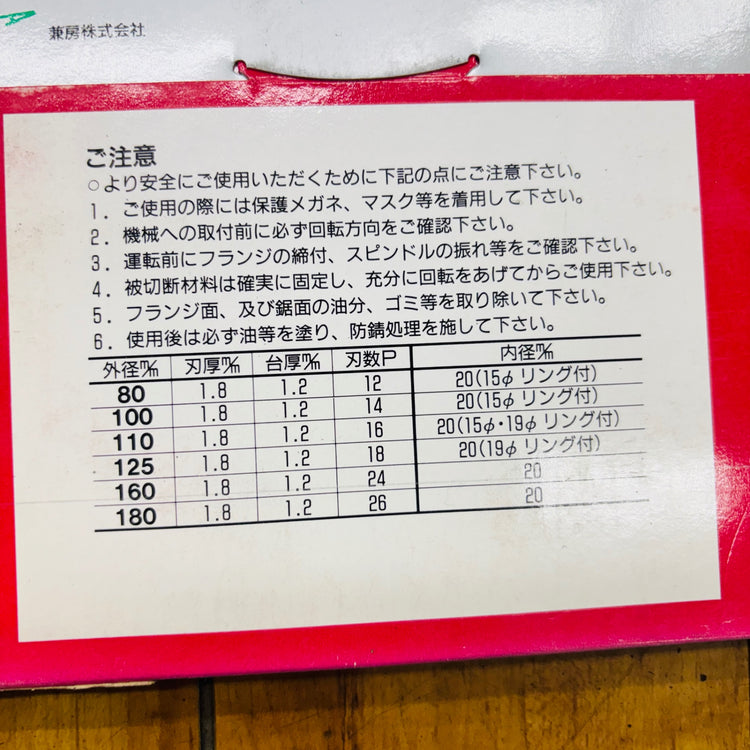 兼房株式会社
ご注意
○より安全にご使用いただくために下記の点にご注意下さい。
1. ご使用の際には保護メガネ、マスク等を着用して下さい。
2. 機械への取付前に必ず回転方向をご確認下さい。
3. 運転前にフランジの締付、スピンドルの振れ等をご確認下さい。
4. 被切断材料は確実に固定し、充分に回転をあげてからご使用下さい。
5. フランジ面、及び鋸面の油分、ゴミ等を取り除いて下さい。
6. 使用後は必ず油等を塗り、防錆処理を施して下さい。
外径㎜ 刃厚㎜ 台厚㎜ 刃数P 内径㎜
80 1.8 1.2 12 20(15φ リング付)
100 1.8 1.2 14 20(15φ リング付)
110 1.8 1.2 16 20(15φ・19φ リング付)
125 1.8 1.2 18 20(19φ リング付)
160 1.8 1.2 24 20
180 1.8 1.2 26 20